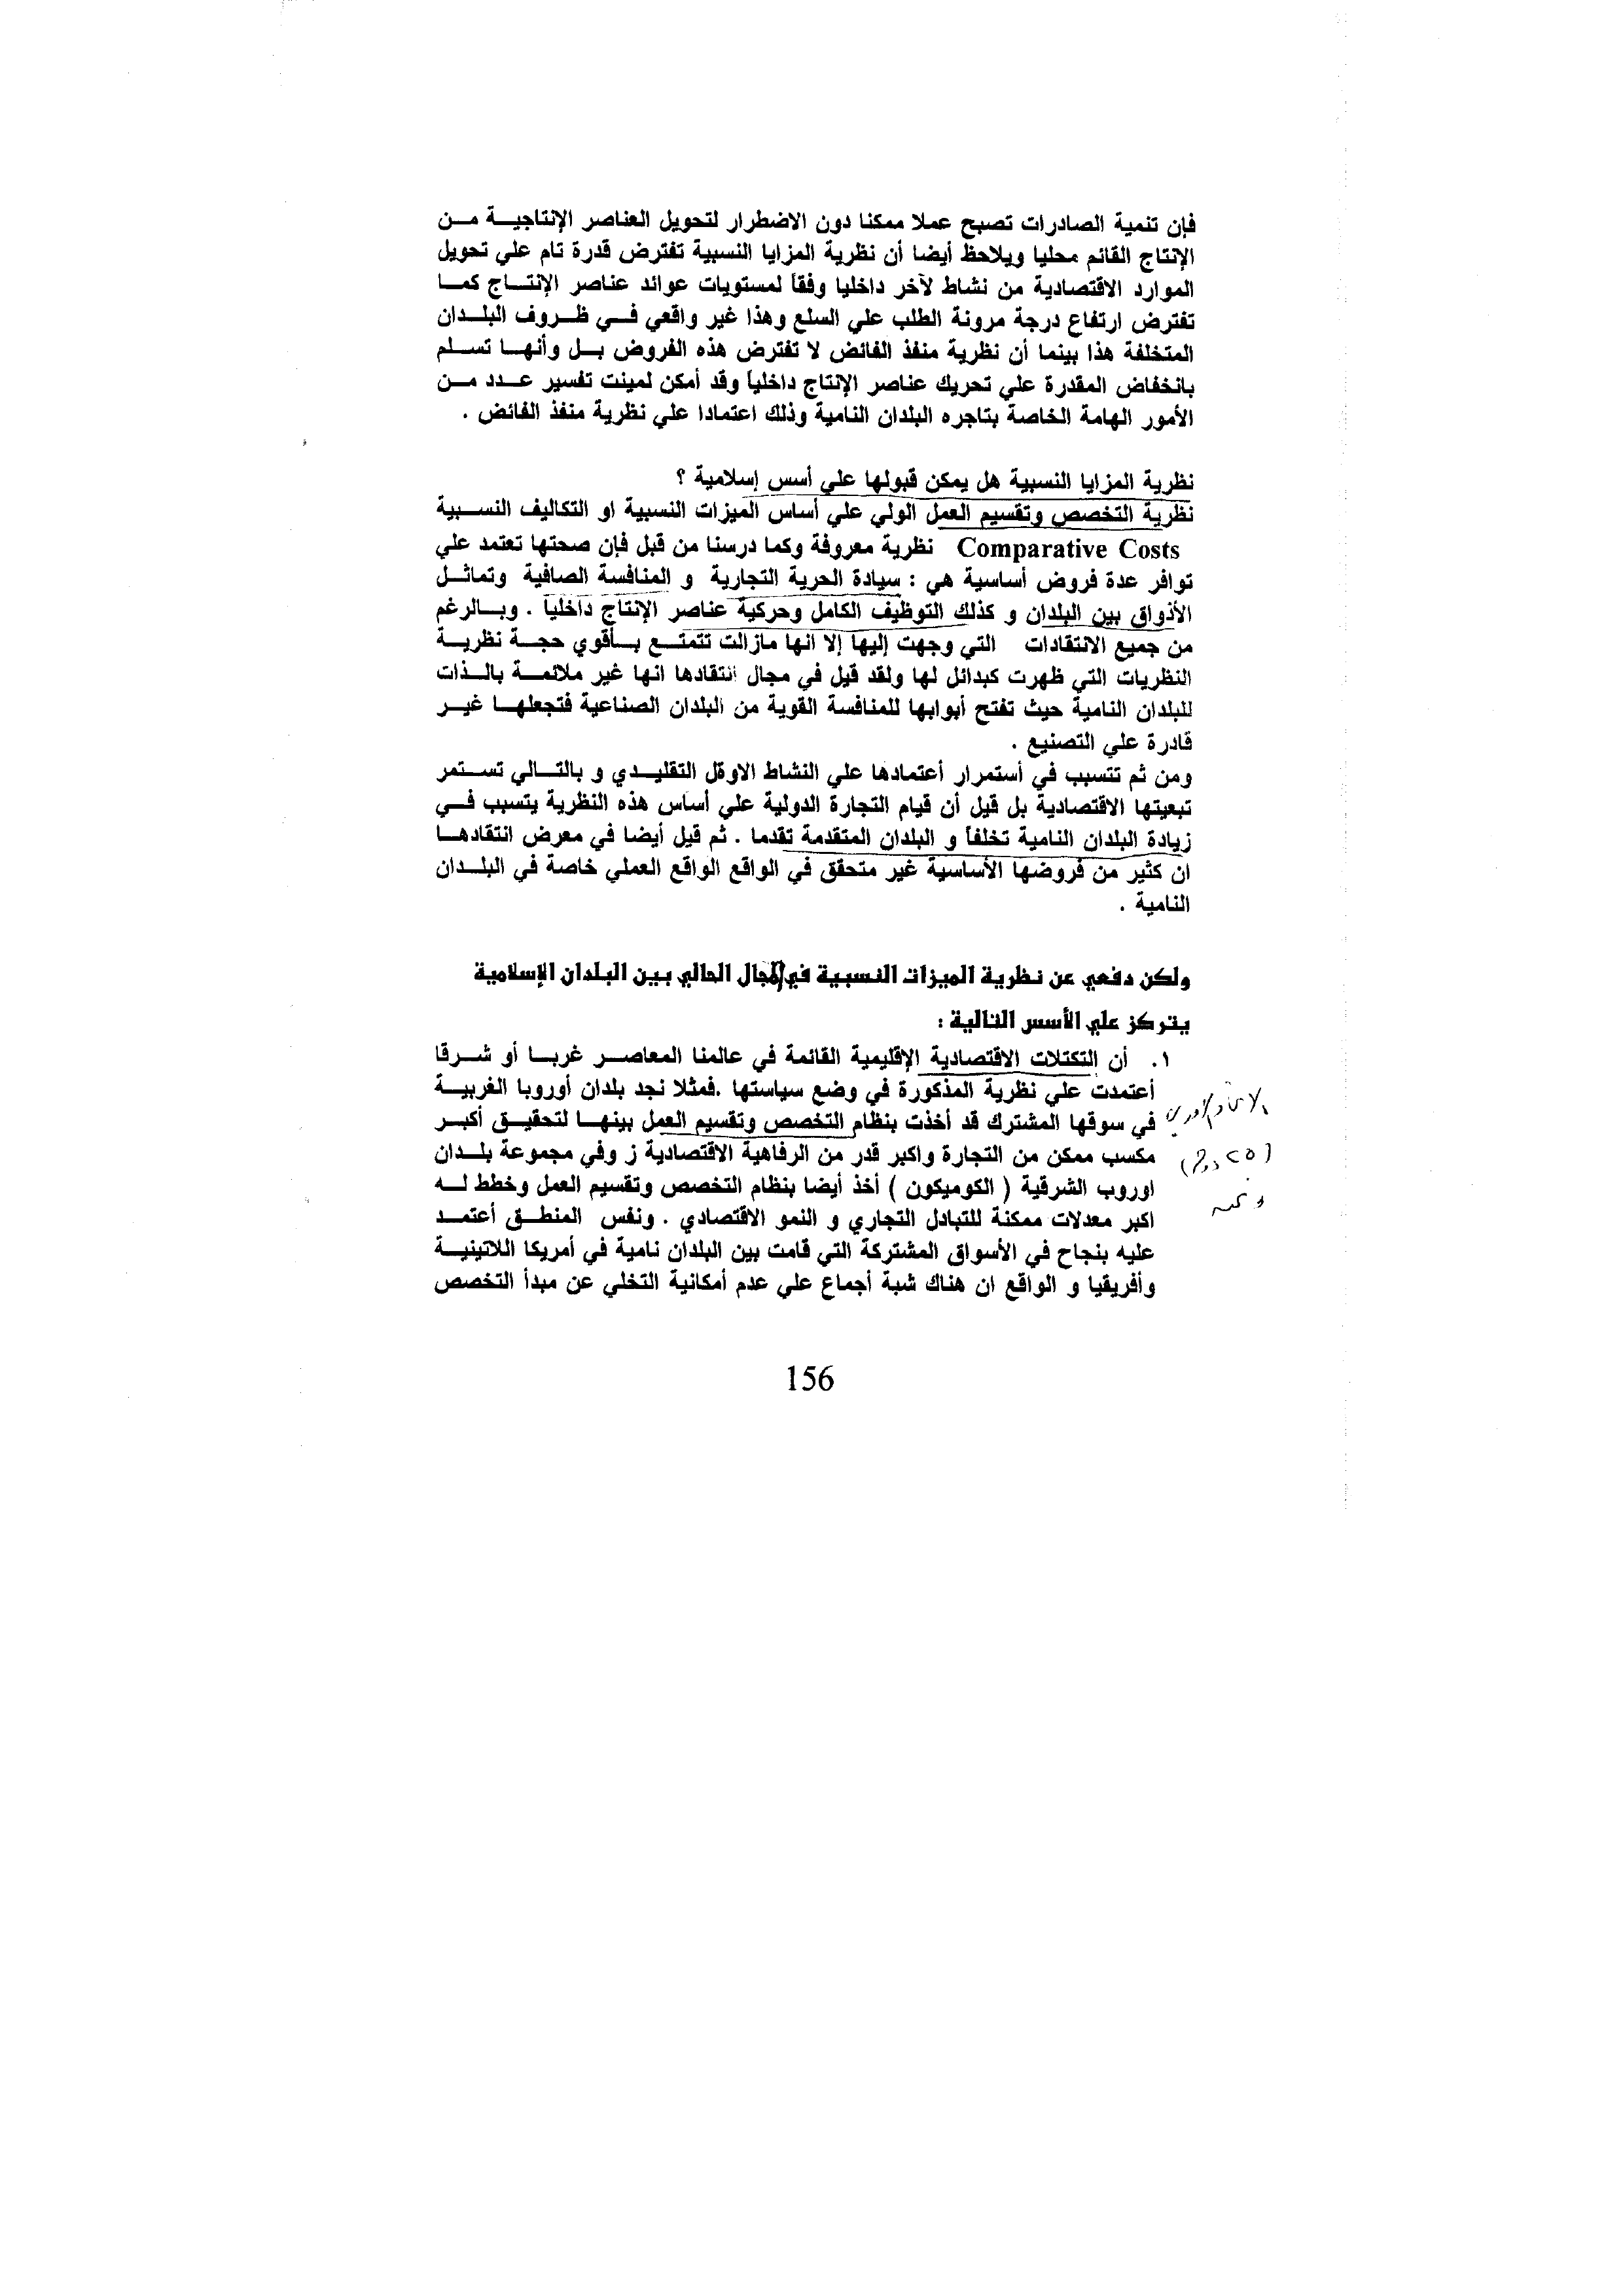 فإن تنمية الصادرات تصبح عملا ممكنا دون الاضطرار لتحويل العناصر الإنتاجية من
الإنتاج القائم محليا ويلاحظ أيضا أن نظرية المزايا النسبية تفترض قدرة تام علي تحويل
الموارد الاقتصادية من نشاط لآخر داخليا وفقاً لمستويات عوائد عناصر الإنتاج كما
تفترض ارتفاع درجة مرونة الطلب علي السلع وهذا غير واقعي في ظروف البلدان
المتخلفة هذا بينما أن نظرية منفذ الفائض لا تفترض هذه الفروض بل وأنها تسلم
بانخفاض المقدرة علي تحريك عناصر الإنتاج داخلياً وقد أمكن لمينت تفسير عدد من
الأمور الهامة الخاصة بتاجره البلدان النامية وذلك اعتمادا علي نظرية منفذ الفائض .
نظرية المزايا النسبية هل يمكن قبولها علي أسس إسلامية ؟
نظرية التخصص وتقسيم العمل الولي علي أساس الميزات النسبية او التكاليف النسبية
Comparative Costs نظرية معروفة وكما درسنا من قبل فإن صحتها تعتمد علي
توافر عدة فروض أساسية هي : سيادة الحرية التجارية و المنافسة الصافية وتماثل
الأذواق بين البلدان و كذلك التوظيف الكامل وحركية عناصر الإنتاج داخلياً . وبالرغم
من جميع الانتقادات التي وجهت إليها إلا انها مازالت تتمتع بأقوي حجة نظرية
النظريات التي ظهرت كبدائل لها ولقد قيل في مجال انتقادها انها غير ملائمة بالذات
للبلدان النامية حيث تفتح أبوابها للمنافسة القوية من البلدان الصناعية فتجعلها غير
قادرة علي التصنيع .
ومن ثم تتسبب في أستمرار أعتمادها علي النشاط الاوقل التقليدي و بالتالي تستمر
تبعيتها الاقتصادية بل قيل أن قيام التجارة الدولية علي أساس هذه النظرية يتسبب في
زيادة البلدان النامية تخلفاً و البلدان المتقدمة تقدما . ثم قيل أيضا في معرض انتقادها
ان كثير من فروضها الأساسية غير متحقق في الواقع الواقع العملي خاصة في البلدان
النامية .
ولكن دفعي عن نظرية الميزات النسبية في المجال الحالي بين البلدان الإسلامية
يتركز علي الأسس التالية :
١. أن التكتلات الاقتصادية الإقليمية القائمة في عالمنا المعاصر غربا أو شرقا
أعتمدت علي نظرية المذكورة في وضع سياستها .فمثلا نجد بلدان أوروبا الغربية
في سوقها المشترك قد أخذت بنظام التخصص وتقسيم العمل بينها لتحقيق أكبر
مكسب ممكن من التجارة واكبر قدر من الرفاهية الاقتصادية ز وفي مجموعة بلدان
اوروب الشرقية ( الكوميكون ) أخذ أيضا بنظام التخصص وتقسيم العمل وخطط له
اكبر معدلات ممكنة للتبادل التجاري و النمو الاقتصادي . ونفس المنطق أعتمد
عليه بنجاح في الأسواق المشتركة التي قامت بين البلدان نامية في أمريكا اللاتينية
وأفريقيا و الواقع ان هناك شبة أجماع علي عدم أمكانية التخلي عن مبدأ التخصص
156